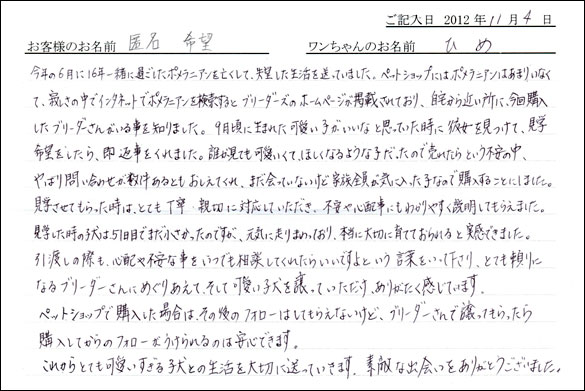 ご記入日 2012年11月4日
お客様のお名前 匿名 希望 ワンちゃんのお名前 ひめ
今年の6月に16年一緒に過ごしたポメラニアンを亡くして、失望した生活を送っていました。ペットショップにはポメラニアンはあまりいなく
て、寂しさの中でインターネットでポメラニアンを検索するとブリーダーズのホームページが掲載されており、自宅から近い所に、今回購入
したブリーダーさんがいる事を知りました。9月頃に生まれた可愛い子がいいなと思っていた時に彼女を見つけて、見学
希望をしたら、即返事をくれました。誰が見ても可愛いくて、ほしくなるような子だったので売れたらという不安の中、
やっぱり問い合わせが数件あるともおしえてくれ、まだ会っていないけど家族全員が気に入った子なので購入することにしました。
見学させてもらった時は、とても丁寧・親切に対応していただき、不安や心配事にもわかりやすく説明してもらえました。
見学した時の子犬は51日目でまだ小さかったのですが、元気に走りまわっており、本当に大切に育てておられると実感できました。
引渡しの際も、心配や不安な事をいつでも相談してくれたらいいですよという言葉をいって下さり、とても頼りに
なるブリーダーさんにめぐりあえて、そして可愛い子犬を譲っていただけ、ありがたく感じています。
ペットショップで購入した場合は、その後のフォローはしてもらえないけど、ブリーダーさんで譲ってもらったら
購入してからのフォローがうけられるのは安心できます。
これからとても可愛いすぎる子犬との生活を大切に送っていきます。素敵な出会いをありがとうございました。